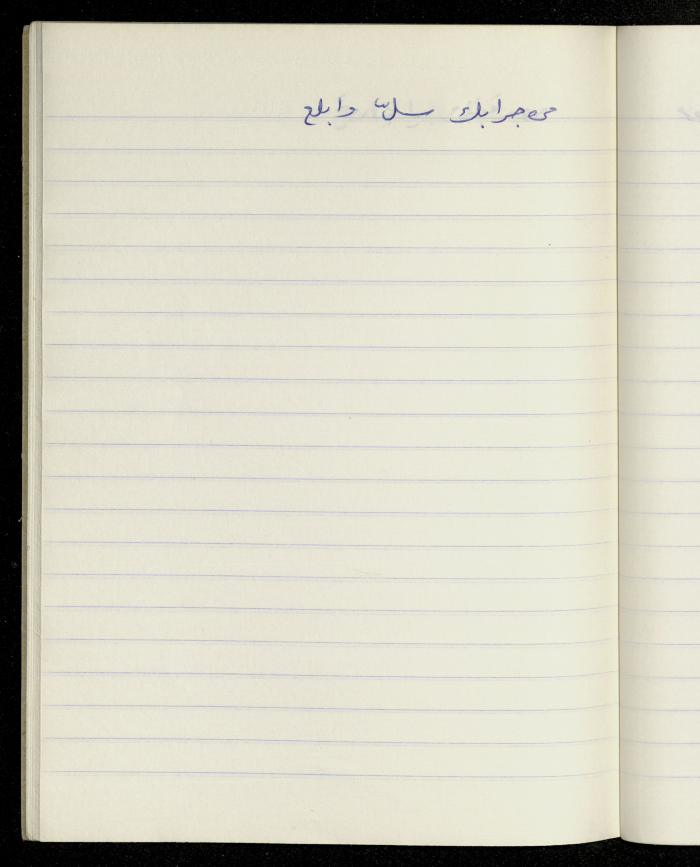 من جرابك سلّ وابلع